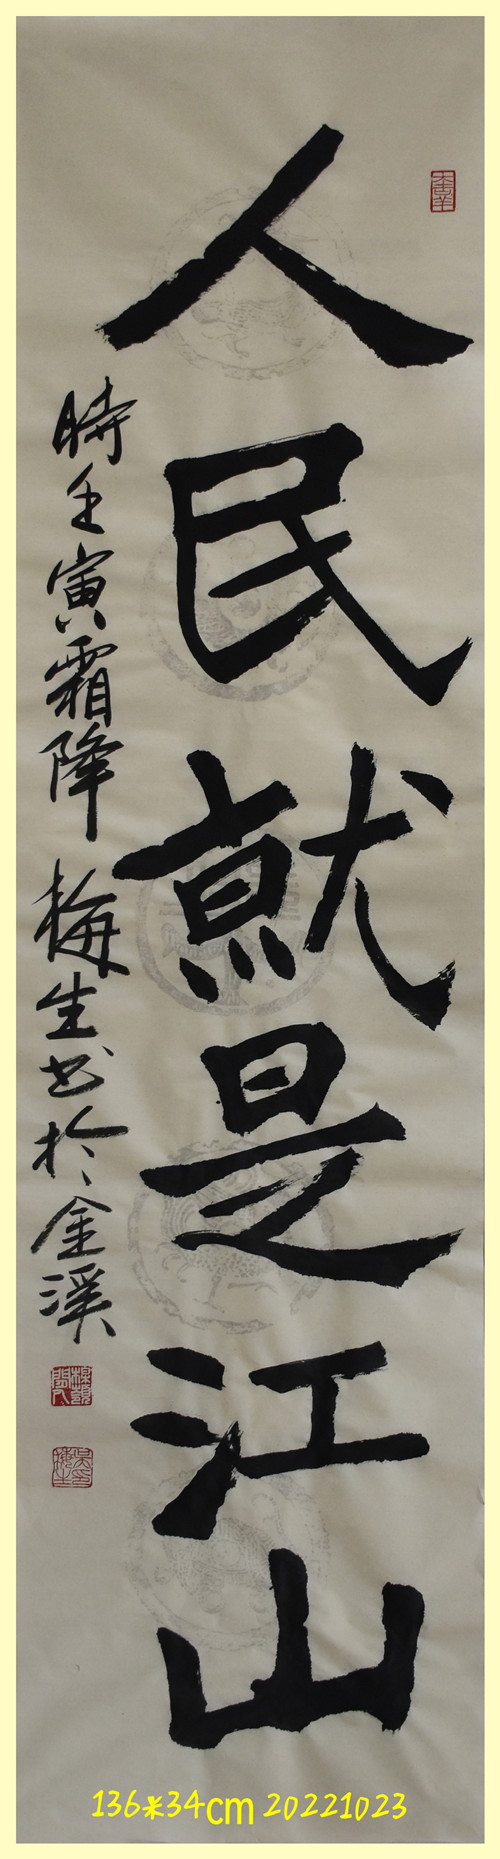 人民就是江山
時壬寅霜降 梅生书於金溪
136*34cm 20221023